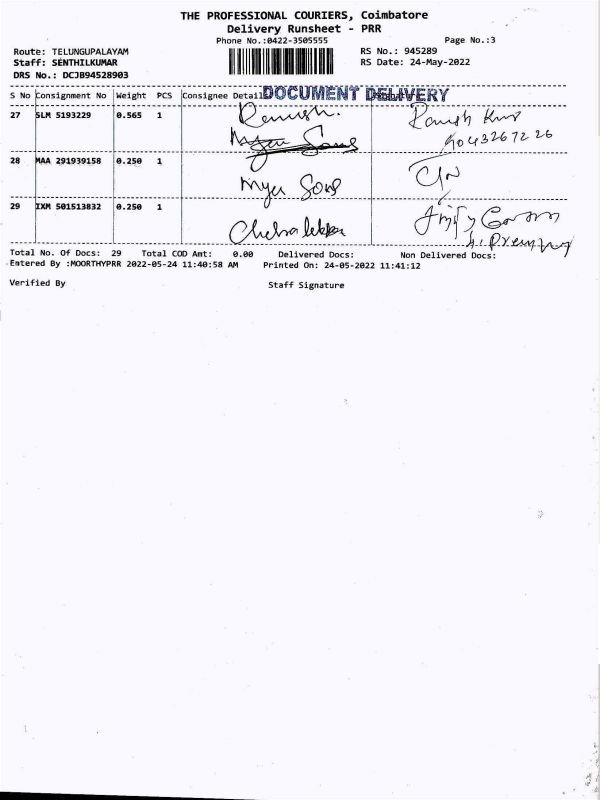 THE PROFESSIONAL COURIERS, Coimbatore
Delivery Runsheet - PRR
Phone No.:0422-3505555 Page No.:3
Route: TELUNGUPALAYAM RS No.: 945289
Staff: SENTHILKUMAR RS Date: 24-May-2022
DRS No.: DCJB94528903
S No Consignment No Weight PCS Consignee Detail DOCUMENT DELIVERY
27 SLM 5193229 0.565 1 Ramesh. Ramesh
9043267226
28 MAA 291939158 0.250 1
Sons
29 IXM 501513832 0.250 1
Total No. Of Docs: 29 Total COD Amt: 0.00 Delivered Docs: Non Delivered Docs:
Entered By :MOORTHYPRR 2022-05-24 11:40:58 AM Printed On: 24-05-2022 11:41:12
Verified By Staff Signature